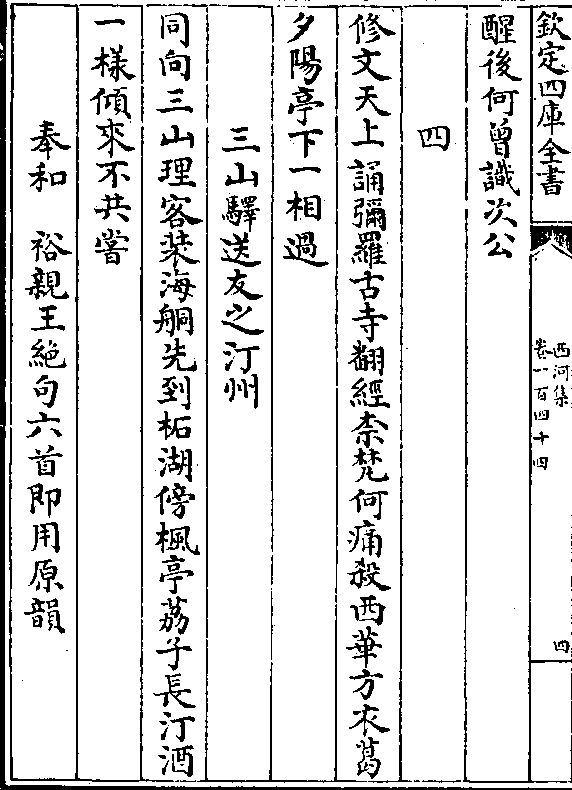 欽定四庫全書
西河集
卷一百四十四
四
醒後何曾識次公
四
修文天上誦彌羅古寺翻經柰梵何痛殺西華方衣葛
夕陽亭下一相過
三山驛送友之汀州
同向三山理客装海舸先到柘湖傍楓亭荔子長汀酒
一樣傾來不共嘗
奉和　裕親王絶句六首即用原韻